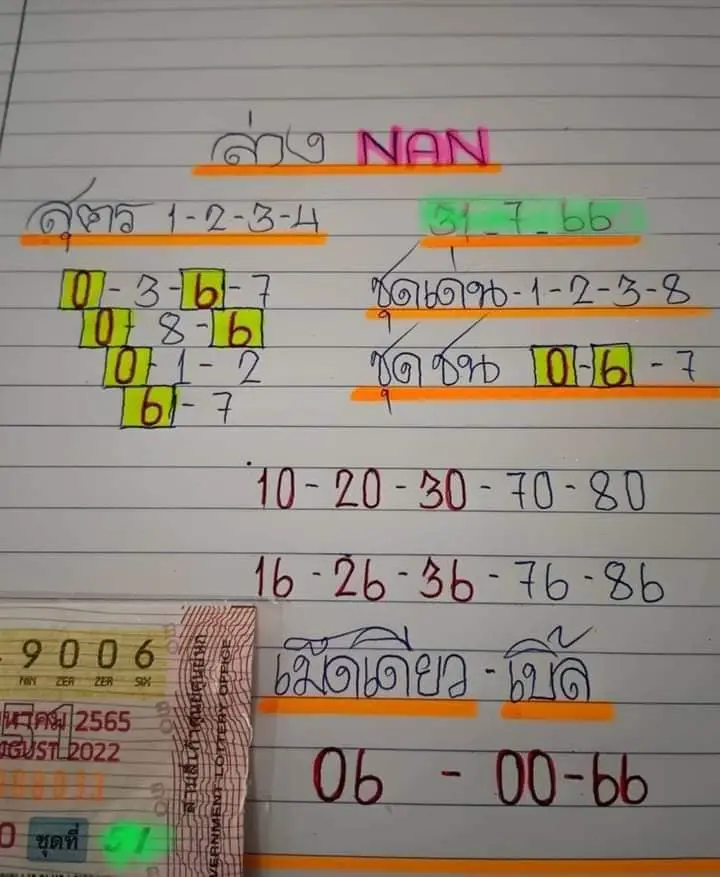 ล่าง NAN
สูตร 1-2-3-4
31-7-66
0-3-6-7
0-8-6
0-1-2
6-7
ชุดเด่น-1-2-3-8
ชุดชน 0-6-7
10-20-30-70-80
16-26-36-76-86
เม็ดเดียว-เบิ้ล
06 - 00-66
9006
NIN ZER ZER SIX
2565
AUGUST 2022
0 ชุดที่ 51
GOVERNMENT LOTTERY OFFICE